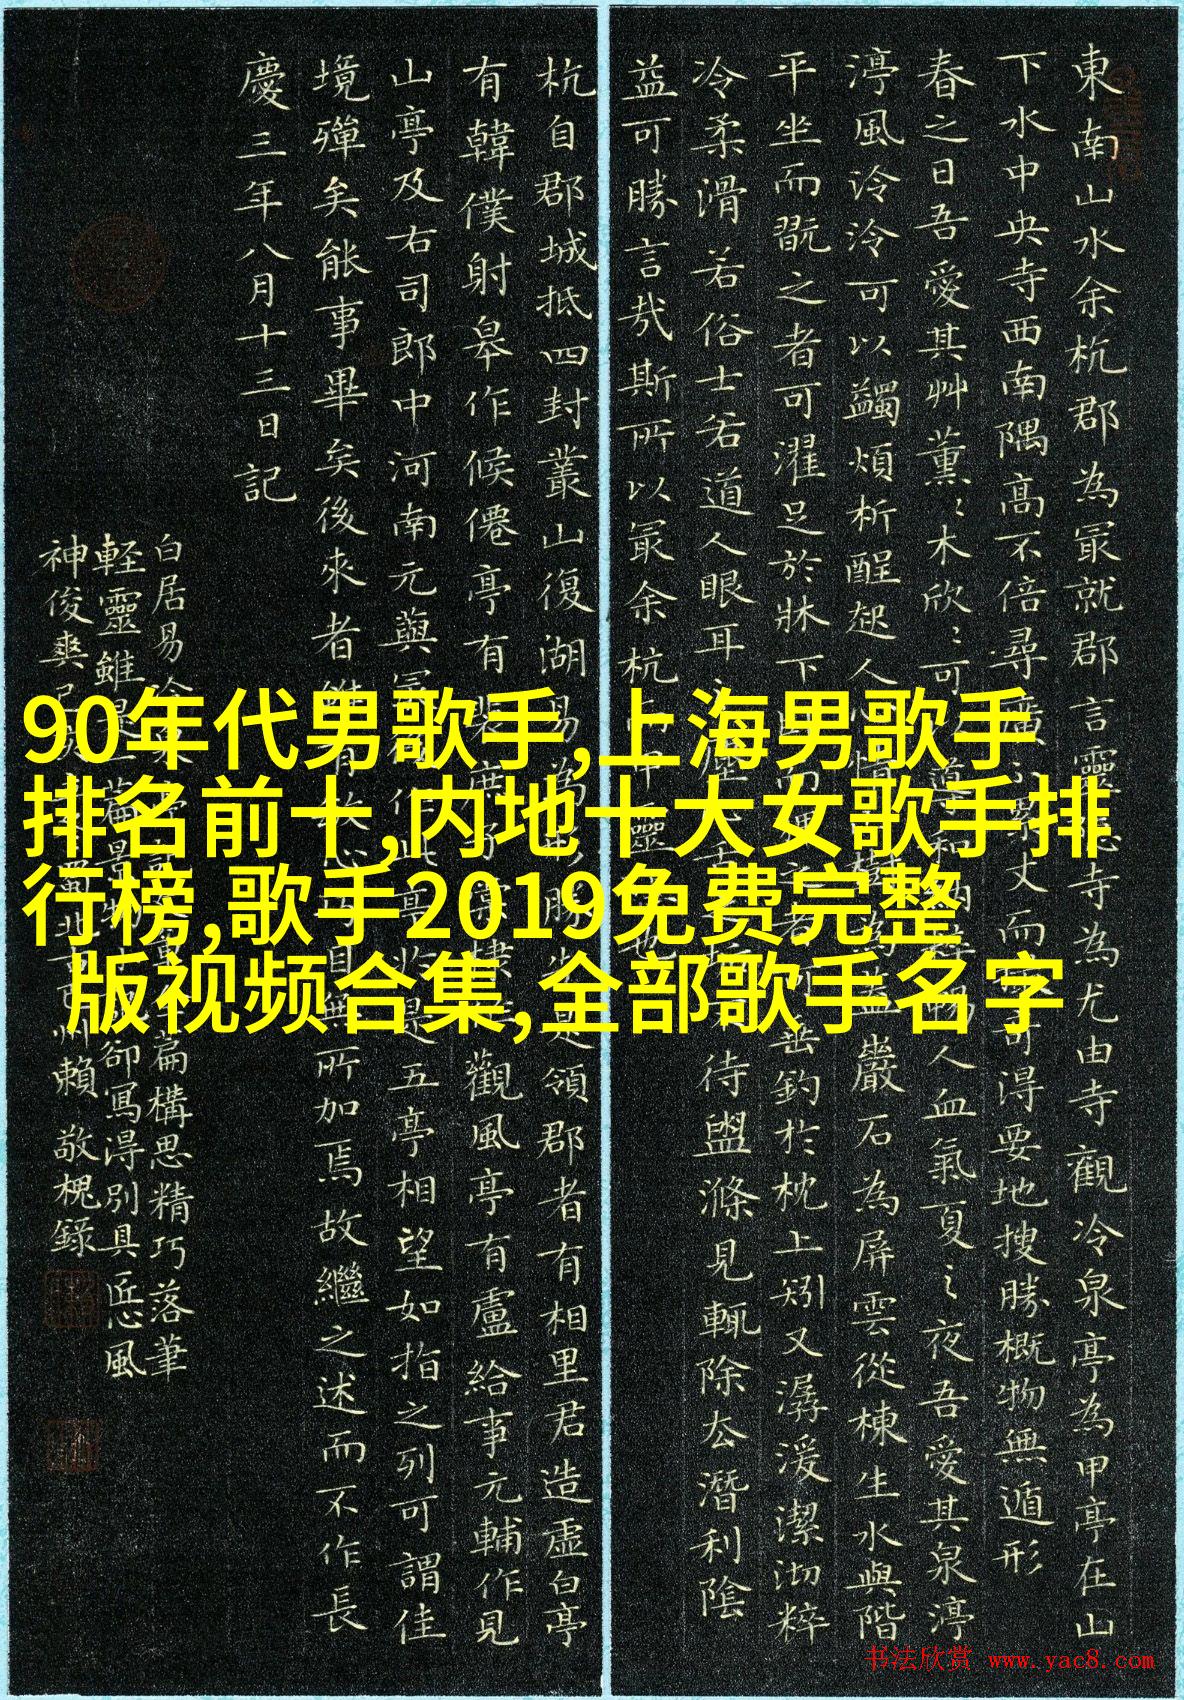 東南山水余杭郡為冣就郡言靈寺為尤由寺觀冷泉亭為甲亭在山
下水中央寺西南隅高不倍尋廣丈而得要地搜勝概物無遁形
春之日吾愛其艸薰〻木欣〻可道暢人血氣夏之夜吾愛其泉渟
渟風泠泠可以蠲煩析酲起人巖石為屏雲從棟生水與階
平坐而翫之者可濯足於牀下垂釣於枕上矧又潺湲潔沏粹
冷柔滑若俗士若道人眼耳待盥滌見輒除去潛利陰
益可勝言哉斯所以冣余杭靈也
杭自郡城抵四封叢山復湖易為勝是領郡者有相里君造虛白亭
有韓僕射皋作候僊亭有裴棠棣觀風亭有盧給事元輔作見
山亭及右司郎中河南元藇冣作此是五亭相望如指之列可謂佳
境殫矣能事畢矣後來者雖有心自無所加焉故繼之述而不作長
慶三年八月十三日記
白居易冷篇構思精巧落筆
軽靈雖是一篇卻寫得別具匠心風
神俊爽賴敬槐錄
90年代男歌手,上海男歌手
排名前十,内地十大女歌手排
行榜,歌手2019免费完整
版视频合集,全部歌手名字
书法欣赏 www.yac8.com